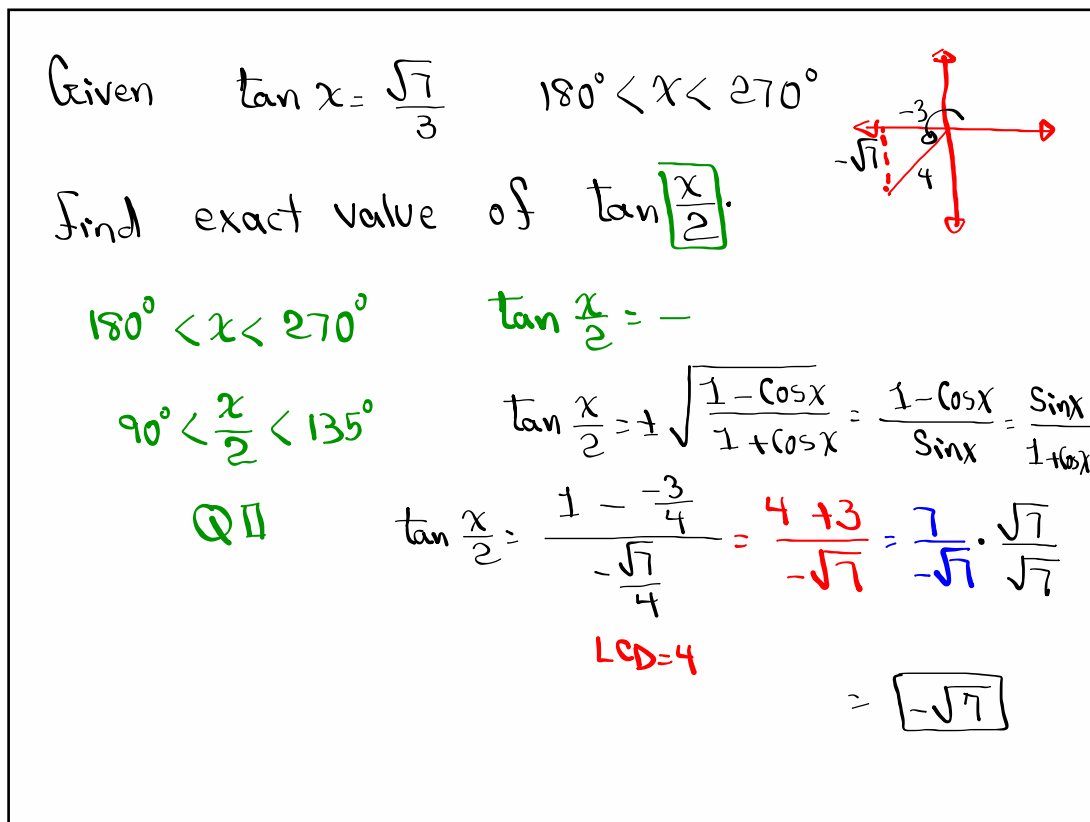 Given tan x = √7/3 180° < x < 270°
-3
-√7
4
Find exact value of tan x/2.
180° < x < 270° tan x/2 = -
90° < x/2 < 135° tan x/2 = ± √((1 - Cosx)/(1 + Cosx)) = (1 - Cosx)/Sinx = Sinx/(1 + Cosx)
QII tan x/2 = (1 - (-3/4))/(-√7/4) = (4 + 3)/(-√7) = 7/(-√7) · √7/√7
LCD=4
= -√7